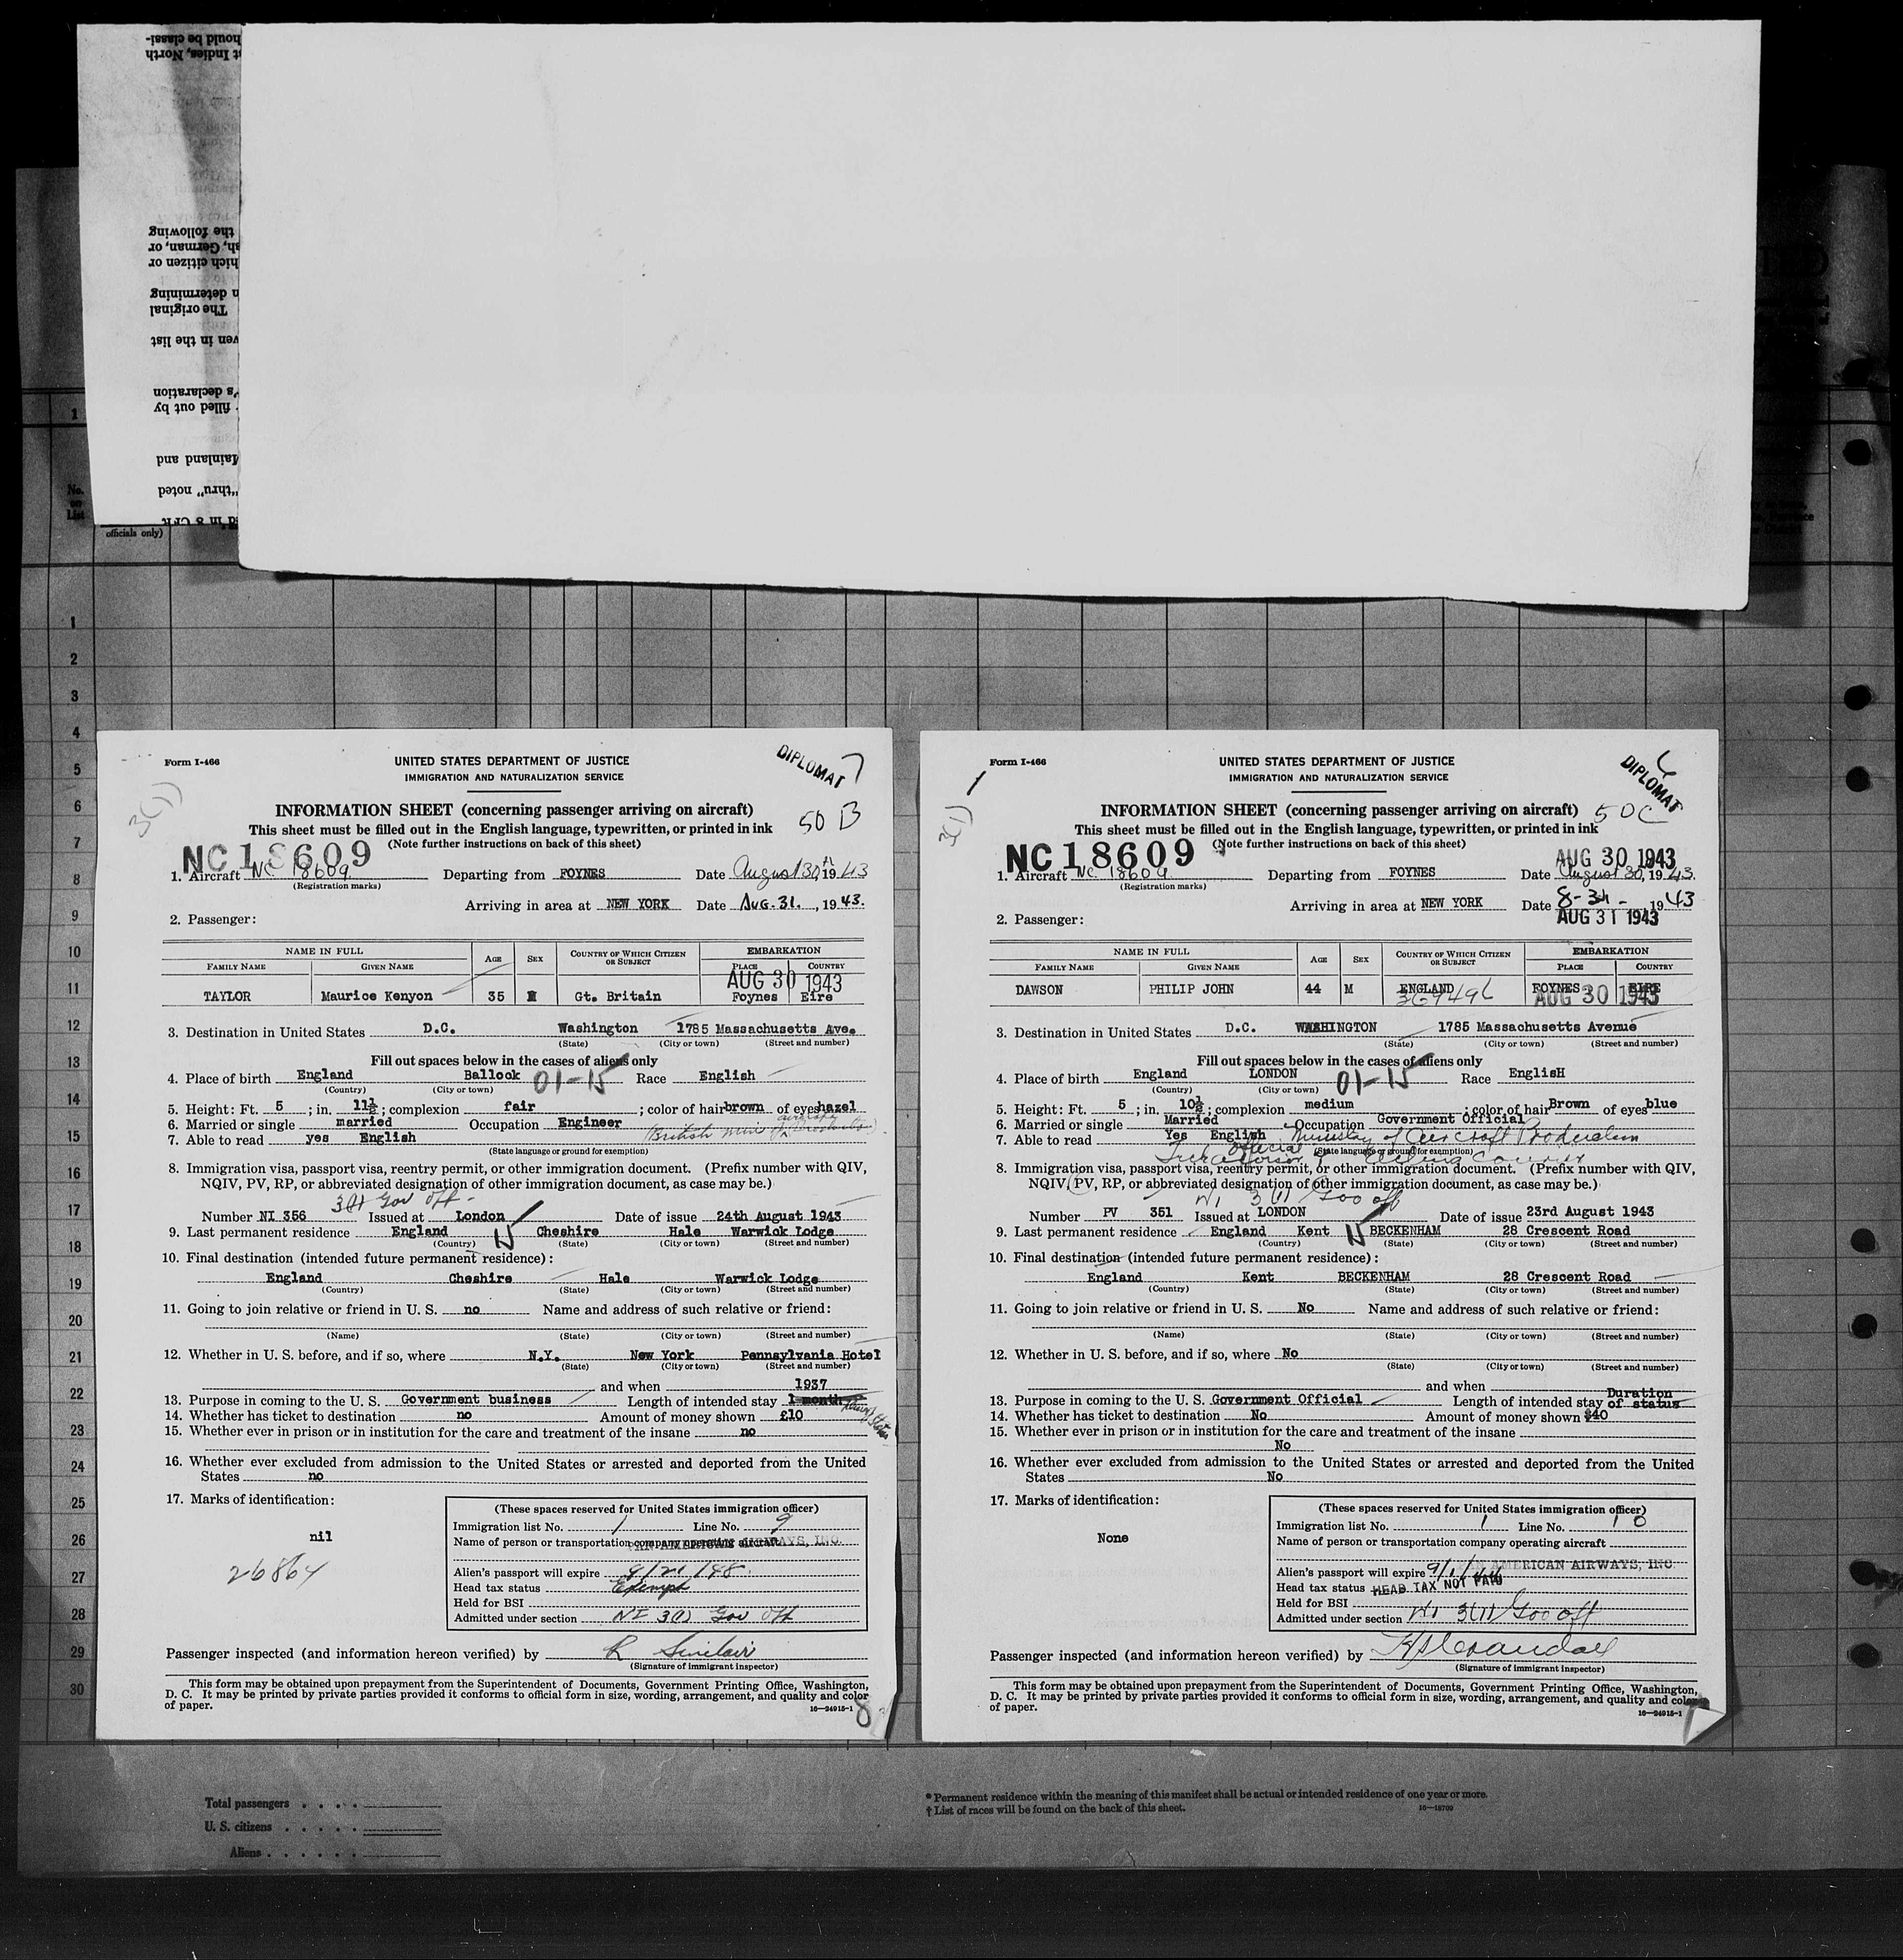 hould be classi-
t Indies, North
the following
sh, German, or
hich citizen or
n determining
The original
ven in the list
's declaration
filled out by
Mainland and
"thru" noted
d in 8 CFR
officials only)
No.
on
List
1
1
2
3
4
5
6
7
8
9
10
11
12
13
14
15
16
17
18
19
20
21
22
23
24
25
26
27
28
29
30
Form I-466
UNITED STATES DEPARTMENT OF JUSTICE
IMMIGRATION AND NATURALIZATION SERVICE
DIPLOMAT 7
3(1)
INFORMATION SHEET (concerning passenger arriving on aircraft)
50 B
This sheet must be filled out in the English language, typewritten, or printed in ink
(Note further instructions on back of this sheet)
NC18609
1. Aircraft NC 18609 Departing from FOYNES Date August 30, 1943
(Registration marks)
Arriving in area at NEW YORK Date AUG. 31., 1943.
2. Passenger:
NAME IN FULL AGE SEX COUNTRY OF WHICH CITIZEN OR SUBJECT EMBARKATION
FAMILY NAME GIVEN NAME PLACE COUNTRY
AUG 30 1943
TAYLOR Maurice Kenyon 35 M Gt. Britain Foynes Eire
3. Destination in United States D.C. Washington 1785 Massachusetts Ave.
(State) (City or town) (Street and number)
Fill out spaces below in the cases of aliens only
4. Place of birth England Ballock 01-15 Race English
(Country) (City or town)
5. Height: Ft. 5; in. 11½; complexion fair; color of hair brown of eyes hazel
6. Married or single married Occupation Engineer
7. Able to read yes English
(State language or ground for exemption)
8. Immigration visa, passport visa, reentry permit, or other immigration document. (Prefix number with QIV,
NQIV, PV, RP, or abbreviated designation of other immigration document, as case may be.)
3(1) Gov Off -
Number NI 356 Issued at London Date of issue 24th August 1943
9. Last permanent residence England 15 Cheshire Hale Warwick Lodge
(Country) (State) (City or town) (Street and number)
10. Final destination (intended future permanent residence):
England Cheshire Hale Warwick Lodge
(Country) (State) (City or town) (Street and number)
11. Going to join relative or friend in U. S. no Name and address of such relative or friend:
(Name) (State) (City or town) (Street and number)
12. Whether in U. S. before, and if so, where N.Y. New York Pennsylvania Hotel
(State) (City or town) (Street and number)
and when 1937
13. Purpose in coming to the U. S. Government business Length of intended stay 1 month
14. Whether has ticket to destination no Amount of money shown £10
15. Whether ever in prison or in institution for the care and treatment of the insane no
16. Whether ever excluded from admission to the United States or arrested and deported from the United
States no
17. Marks of identification:
nil
26864
(These spaces reserved for United States immigration officer)
Immigration list No. 1 Line No. 9
Name of person or transportation company operating aircraft PAN AMERICAN AIRWAYS, INC.
Alien's passport will expire 9/21/48.
Head tax status Exempt
Held for BSI
Admitted under section NI 3(1) Gov Off
Passenger inspected (and information hereon verified) by R Sinclair
(Signature of immigrant inspector)
This form may be obtained upon prepayment from the Superintendent of Documents, Government Printing Office, Washington,
D. C. It may be printed by private parties provided it conforms to official form in size, wording, arrangement, and quality and color
of paper.
16—24915-1
8
Form I-466
UNITED STATES DEPARTMENT OF JUSTICE
IMMIGRATION AND NATURALIZATION SERVICE
DIPLOMAT
3(1)
INFORMATION SHEET (concerning passenger arriving on aircraft)
50C
This sheet must be filled out in the English language, typewritten, or printed in ink
(Note further instructions on back of this sheet)
NC18609
AUG 30 1943
1. Aircraft NC 18609 Departing from FOYNES Date August 30, 1943.
(Registration marks)
Arriving in area at NEW YORK Date 8-31-1943
AUG 31 1943
2. Passenger:
NAME IN FULL AGE SEX COUNTRY OF WHICH CITIZEN OR SUBJECT EMBARKATION
FAMILY NAME GIVEN NAME PLACE COUNTRY
DAWSON PHILIP JOHN 44 M ENGLAND FOYNES EIRE
369496 AUG 30 1943
3. Destination in United States D.C. WASHINGTON 1785 Massachusetts Avenue
(State) (City or town) (Street and number)
Fill out spaces below in the cases of aliens only
4. Place of birth England LONDON 01-15 Race EnglisH
(Country) (City or town)
5. Height: Ft. 5; in. 10½; complexion medium; color of hair Brown of eyes blue
6. Married or single Married Occupation Government Official
7. Able to read Yes English Ministry of Aircraft Production
(State language or ground for exemption)
8. Immigration visa, passport visa, reentry permit, or other immigration document. (Prefix number with QIV,
NQIV, PV, RP, or abbreviated designation of other immigration document, as case may be.)
NI 3(1) Gov off
Number PV 351 Issued at LONDON Date of issue 23rd August 1943
9. Last permanent residence England Kent 15 BECKENHAM 28 Crescent Road
(Country) (State) (City or town) (Street and number)
10. Final destination (intended future permanent residence):
England Kent BECKENHAM 28 Crescent Road
(Country) (State) (City or town) (Street and number)
11. Going to join relative or friend in U. S. No Name and address of such relative or friend:
(Name) (State) (City or town) (Street and number)
12. Whether in U. S. before, and if so, where No
(State) (City or town) (Street and number)
and when
13. Purpose in coming to the U. S. Government Official Length of intended stay Duration of status
14. Whether has ticket to destination No Amount of money shown $40
15. Whether ever in prison or in institution for the care and treatment of the insane
No
16. Whether ever excluded from admission to the United States or arrested and deported from the United
States No
17. Marks of identification:
None
(These spaces reserved for United States immigration officer)
Immigration list No. 1 Line No. 10
Name of person or transportation company operating aircraft
PAN AMERICAN AIRWAYS, INC
Alien's passport will expire 9/1/44
Head tax status HEAD TAX NOT PAID
Held for BSI
Admitted under section NI 3(1) Gov off
Passenger inspected (and information hereon verified) by
(Signature of immigrant inspector)
This form may be obtained upon prepayment from the Superintendent of Documents, Government Printing Office, Washington,
D. C. It may be printed by private parties provided it conforms to official form in size, wording, arrangement, and quality and color
of paper.
16—24915-1
Total passengers . . . .
U. S. citizens . . . . .
Aliens . . . . . .
* Permanent residence within the meaning of this manifest shall be actual or intended residence of one year or more.
† List of races will be found on the back of this sheet.
16—18709